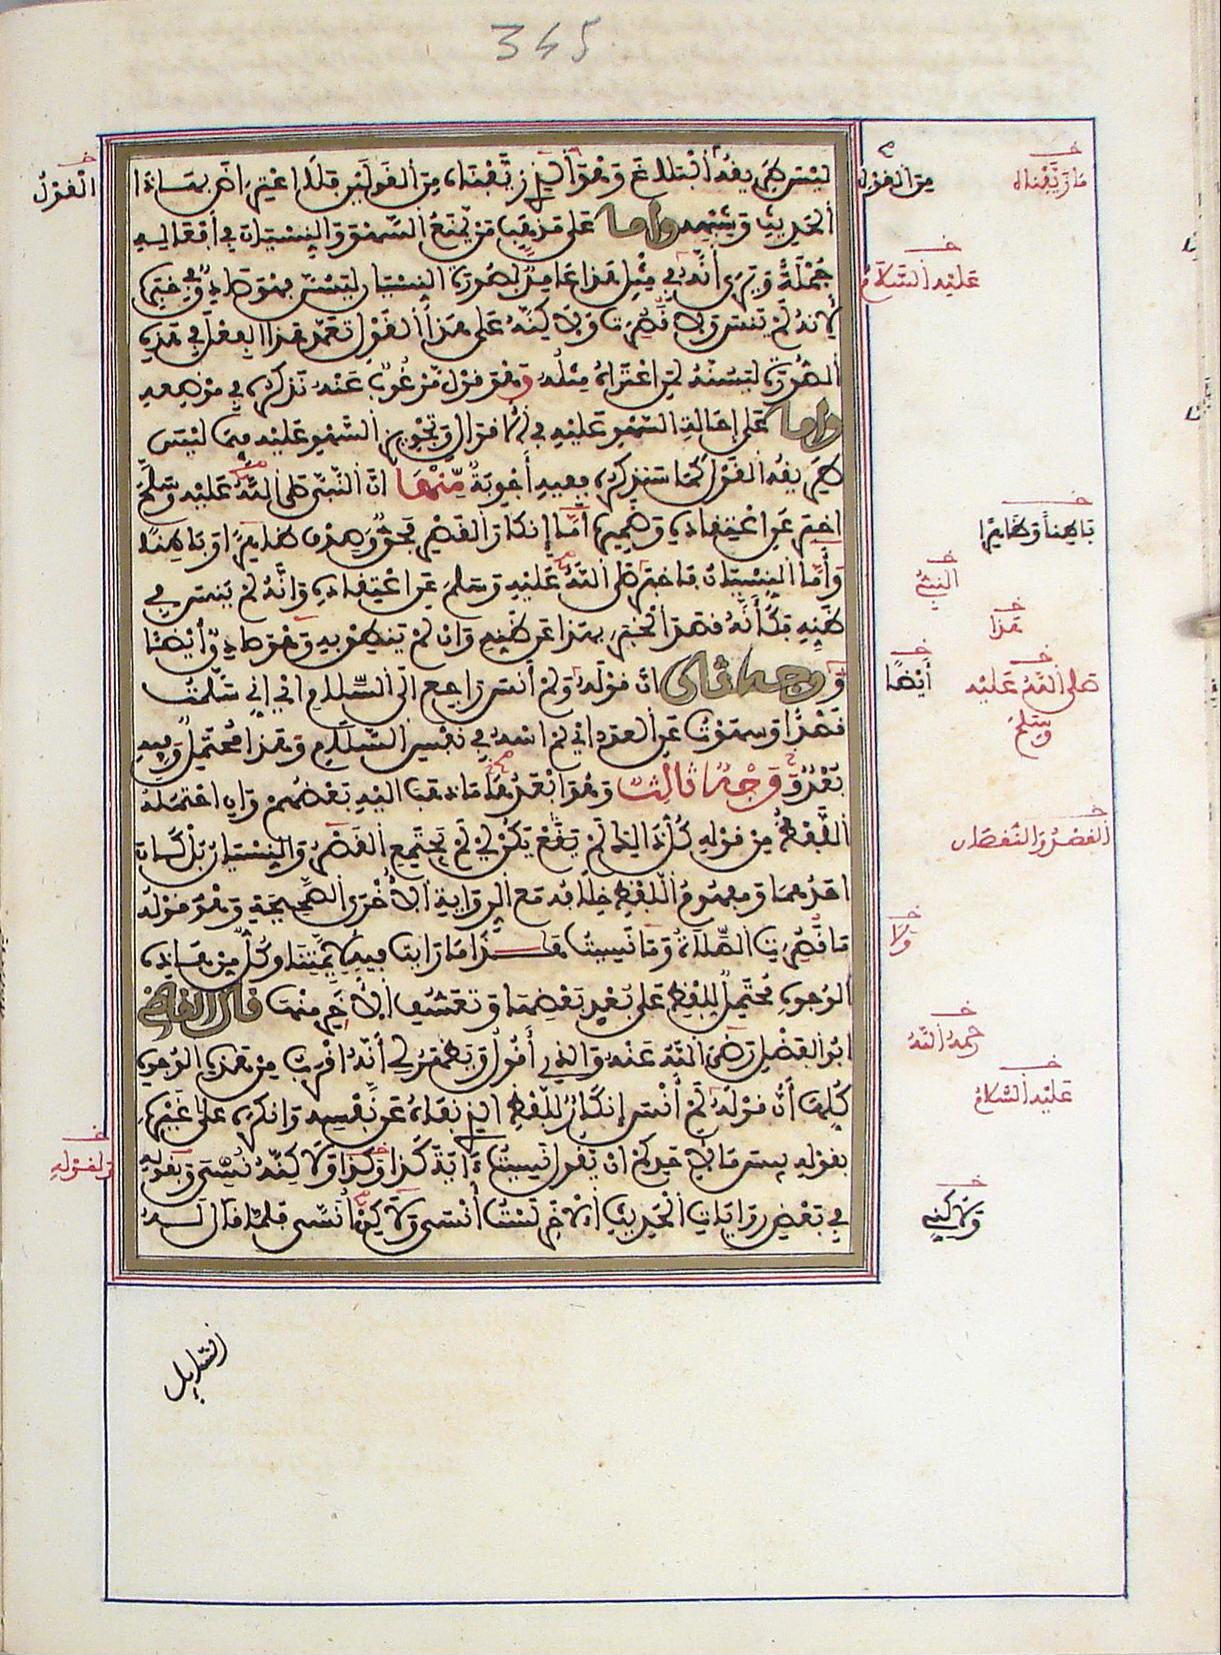 345
ليس طريقه البلاغ وهو الذي زيفناه من القولين فلا اعتراض بهذا
الحديث وشبهه وأما على مذهب من يمنع السهو والنسيان في أفعاله
جملة ويرى أنه في مثل هذا عامد لصورة النسيان ليسن فهو صادق في خبره
لأنه لم ينس ولا قصرت ولكنه على هذا القول تعمد هذا الفعل في هذه
الصورة ليسنه لمن اعتراه مثله وهو قول مرغوب عنه نذكره في موضعه
وأما على إحالة السهو عليه في الأقوال وتجويز السهو عليه فيما ليس
طريقه القول كما سنذكره ففيه أجوبة منها أن النبي صلى الله عليه وسلم
أخبر عن اعتقاده وضميره أما إنكار القصر فحق وصدق ظاهرا وباطنا
وأما النسيان فأخبر صلى الله عليه وسلم عن اعتقاده وأنه لم ينس في
ظنه فكأنه قصد الخبر بهذا عن ظنه وإن لم ينطق به وهو صدق أيضا
ووجه ثاني أن قوله ولم أنس راجع إلى السلام أي إني سلمت
قصدا وسهوت عن العدد أي لم أسه في نفس السلام وهذا محتمل وفيه
بعد ووجه ثالث وهو أبعدها ما ذهب إليه بعضهم وإن احتمله
اللفظ من قوله كل ذلك لم يقع يكن أي لم يجتمع القصر والنسيان بل كان
أحدهما ومفهوم اللفظ خلافه مع الرواية الأخرى الصحيحة وهو قوله
ما قصرت الصلاة وما نسيت هذا ما رأيت فيه لأئمتنا وكل من هذه
الوجوه محتمل للفظ على بعد بعضها وتعسف الآخر منها قال القاضي
أبو الفضل رضي الله عنه والذي أقول ويظهر لي أنه أقرب من هذه الوجوه
كلها أن قوله لم أنس إنكار للفظ الذي نفاه عن نفسه وأنكره على غيره
بقوله بيس ما لأحدكم أن يقول نسيت ءاية كذا وكذا ولاكنه نسي وبقوله
في بعض روايات الحديث الآخر لست أنسى ولاكن أنسى فلما قال له
القول
من القول
ما زيفناه
عليه السلام
باطنا وظاهرا
النبي
هذا
أيضا
صلى الله عليه
وسلم
القصر والنقصان
ولا
رحمه الله
عليه السلام
ولقوله
ولاكني
السايل